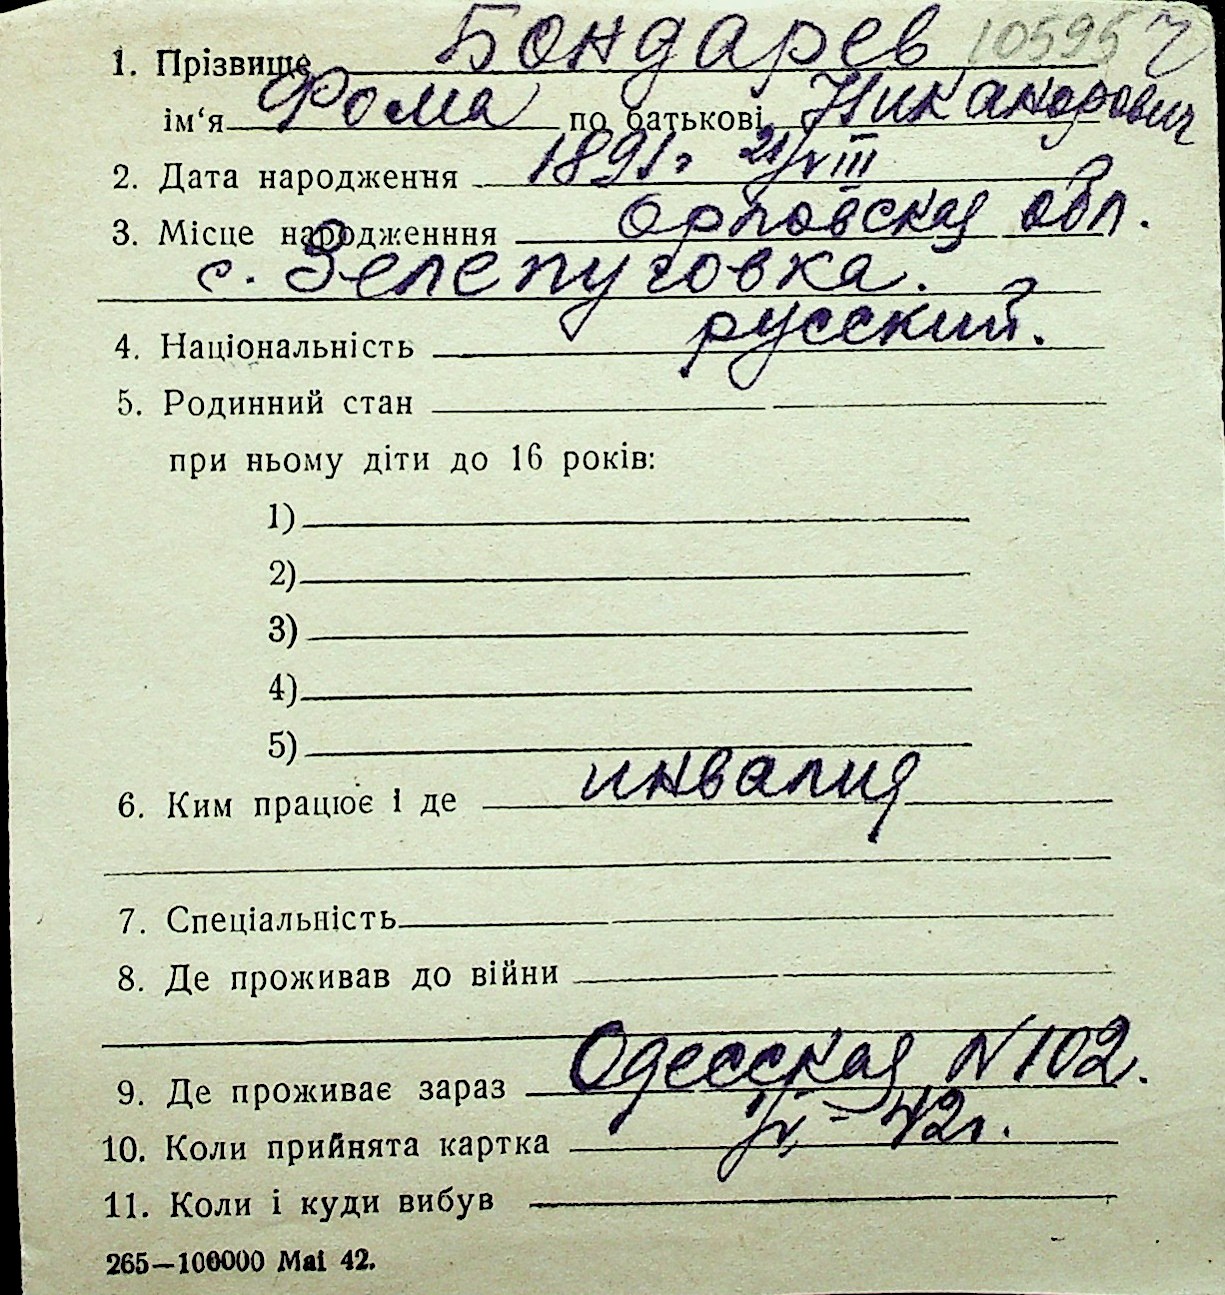 1. Прізвище Бондарев 10595
ім‘я Фома по батькові Никанорович
2. Дата народження 1891г. 21/VIII
3. Місце народженння Орловская обл.
с. Зелепуговка.
4. Національність русский.
5. Родинний стан
при ньому діти до 16 років:
1)
2)
3)
4)
5)
6. Ким працює і де инвалид
7. Спеціальність
8. Де проживав до війни
9. Де проживає зараз Одесская N 102.
10. Коли прийнята картка 42г.
11. Коли і куди вибув
265—100000 Mai 42.